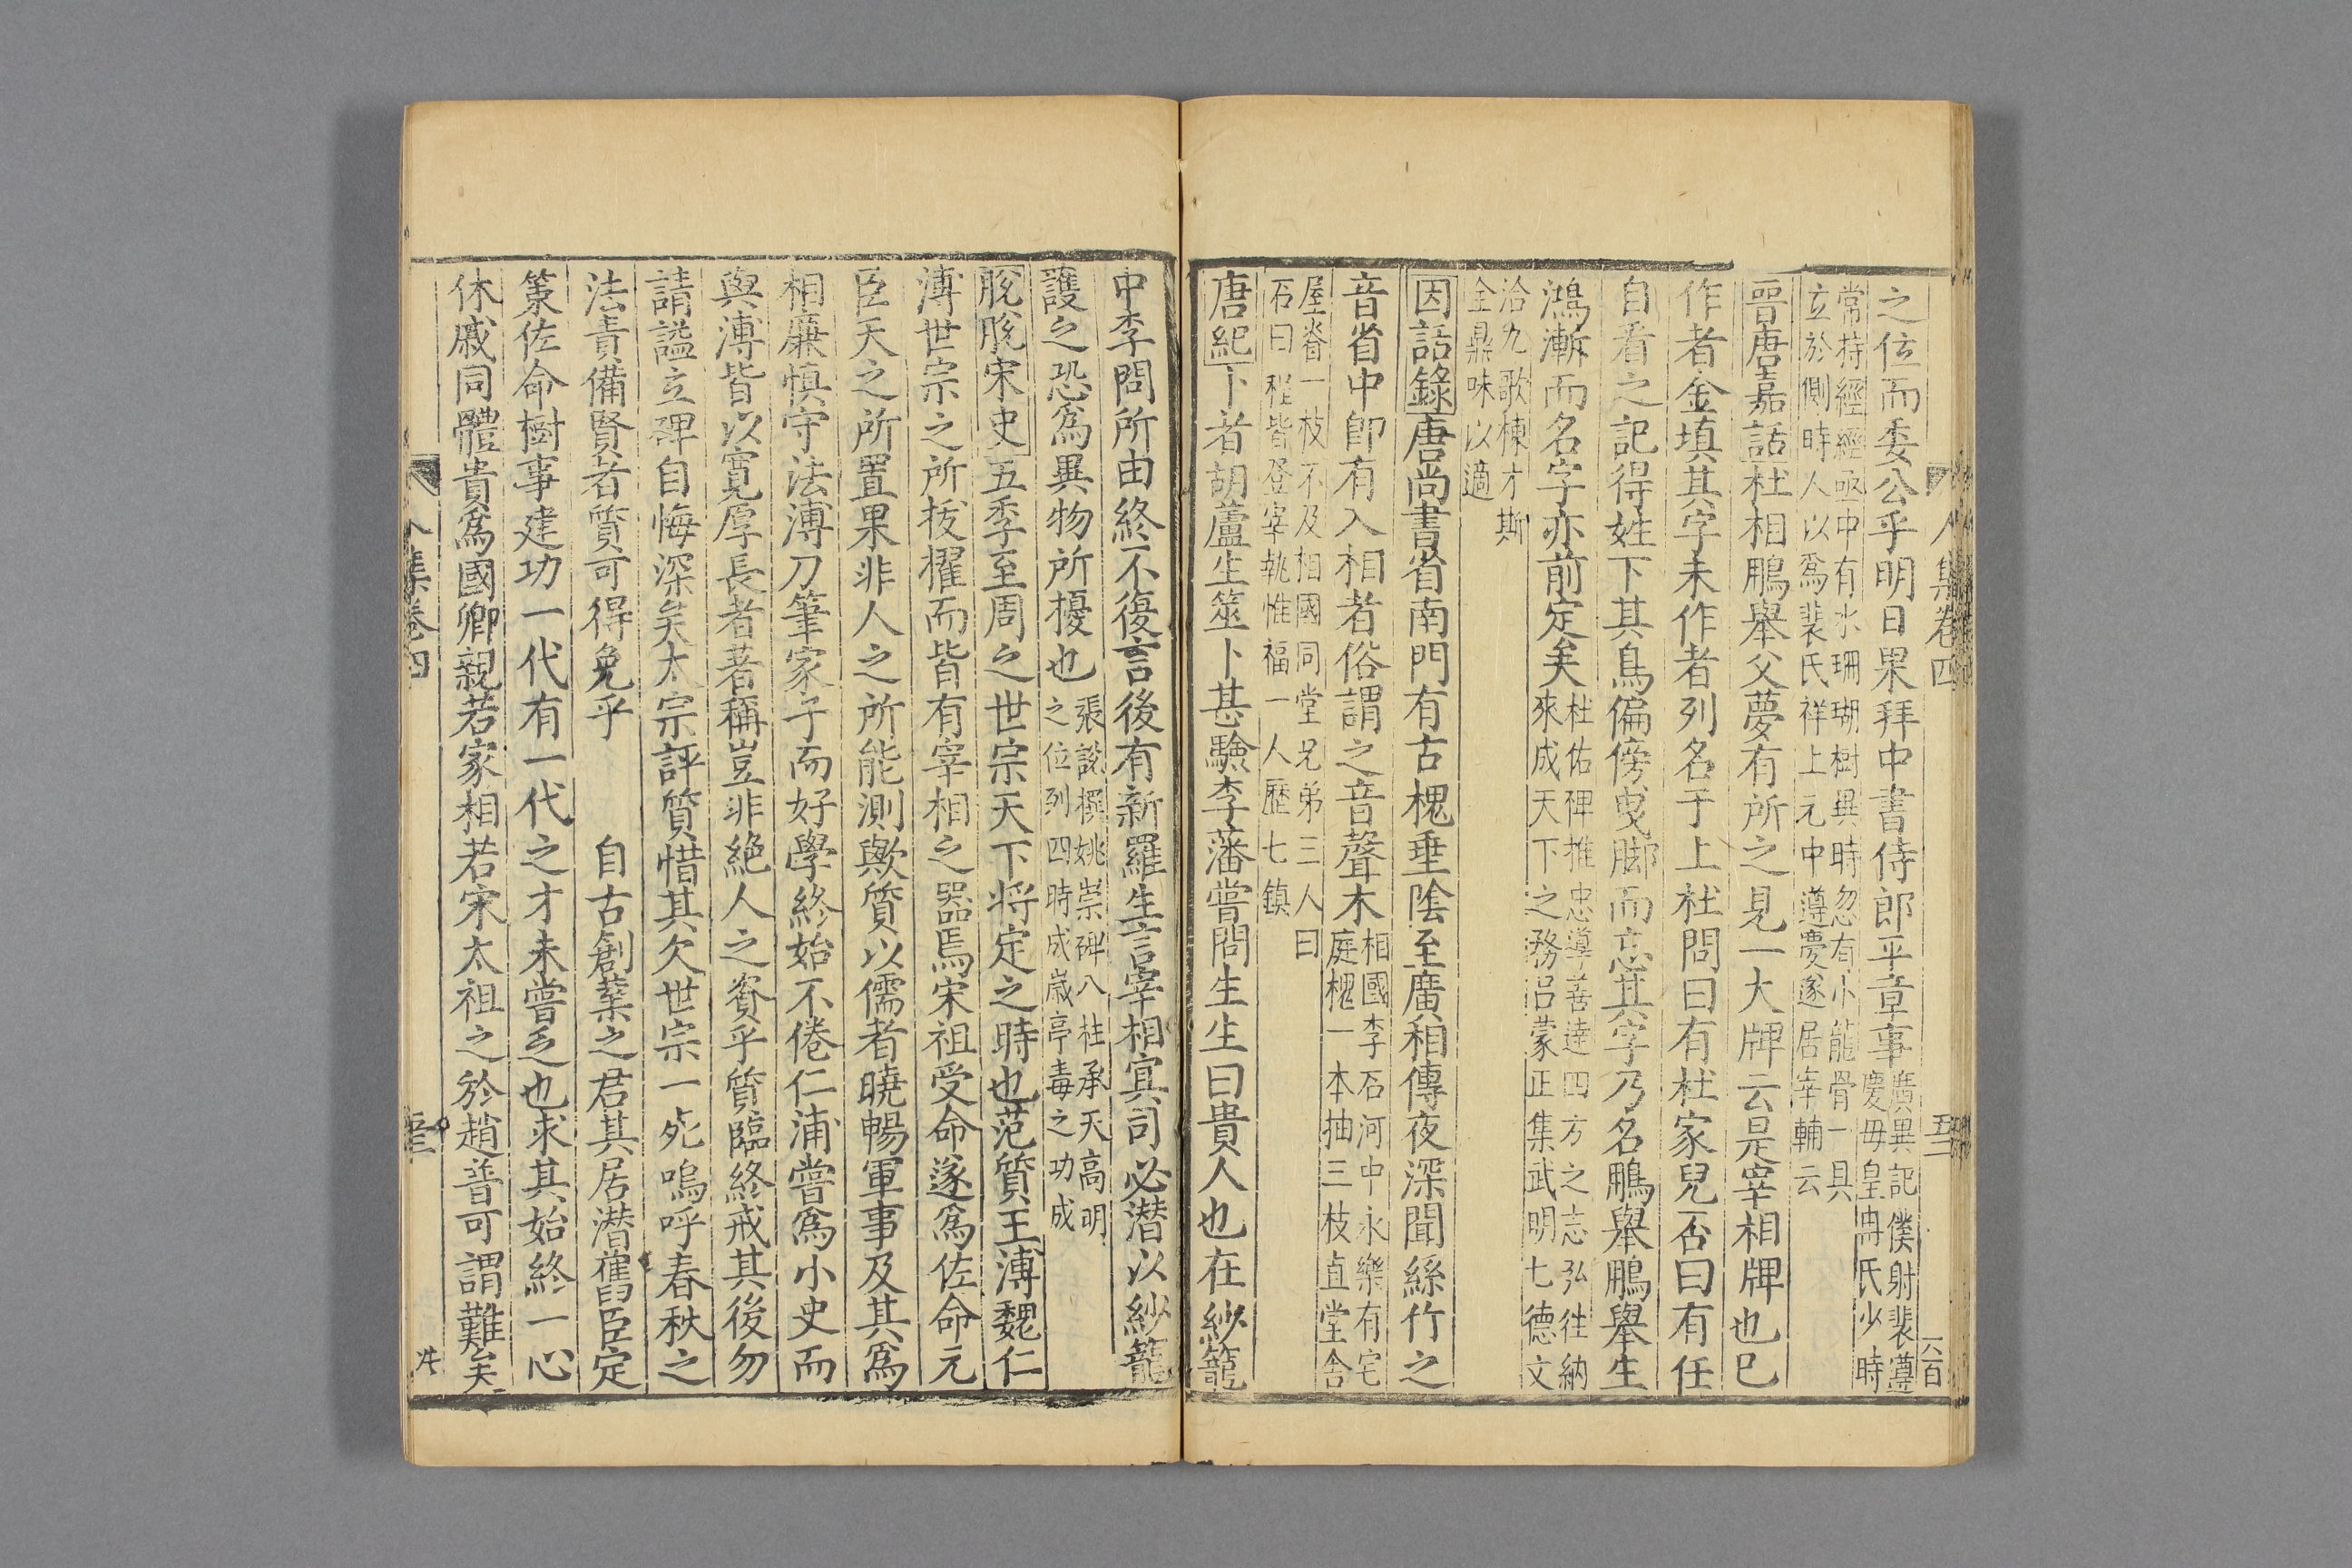 人集卷四
五二
六百
之位而委公乎明日果拜中書侍郎平章事廣異記僕射裴遵
慶母皇甫氏少時
常持經經函中有水珊瑚樹異時忽有小龍骨一具
立於側時人以爲裴氏祥上元中遵慶遂居宰輔云
晉唐嘉話杜相鵬舉父夢有所之見一大牌云是宰相牌也巳
作者金填其字未作者列名于上杜問曰有杜家兒否曰有任
自看之記得姓下其鳥偏傍曳脚而忘其字乃名鵬舉鵬舉生
鴻漸而名字亦前定矣杜佑碑推忠導善達四方之志弘往納
來成天下之務呂蒙正集武明七德文
洽九歌棟才斯
全鼎味以適
因話錄唐尚書省南門有古槐垂陰至廣相傳夜深聞絲竹之
音省中卽有入相者俗謂之音聲木相國李石河中永樂有宅
庭槐一本抽三枝直堂舍
屋脊一枝不及相國同堂兄弟三人曰
石曰程皆登宰執惟福一人歷七鎮
唐紀卜者胡蘆生筮卜甚驗李藩嘗問生生曰貴人也在紗籠
中李問所由終不復言後有新羅生言宰相冥司必潛以紗籠
護之恐爲異物所擾也張說撰姚崇碑八柱承天高明
之位列四時成歲亭毒之功成
脫脫宋史五季至周之世宗天下將定之時也范質王溥魏仁
溥世宗之所拔擢而皆有宰相之器焉宋祖受命遂爲佐命元
臣天之所置果非人之所能測歟質以儒者曉暢軍事及其爲
相廉慎守法溥刀筆家子而好學終始不倦仁浦嘗爲小史而
與溥皆以寬厚長者著稱豈非絕人之資乎質臨終戒其後勿
請謚立碑自悔深矣太宗評質惜其欠世宗一死嗚呼春秋之
法責備賢者質可得免乎 自古創業之君其居潛舊臣定
策佐命樹事建功一代有一代之才未嘗乏也求其始終一心
休戚同體貴爲國卿親若家相若宋太祖之於趙普可謂難矣
集卷四